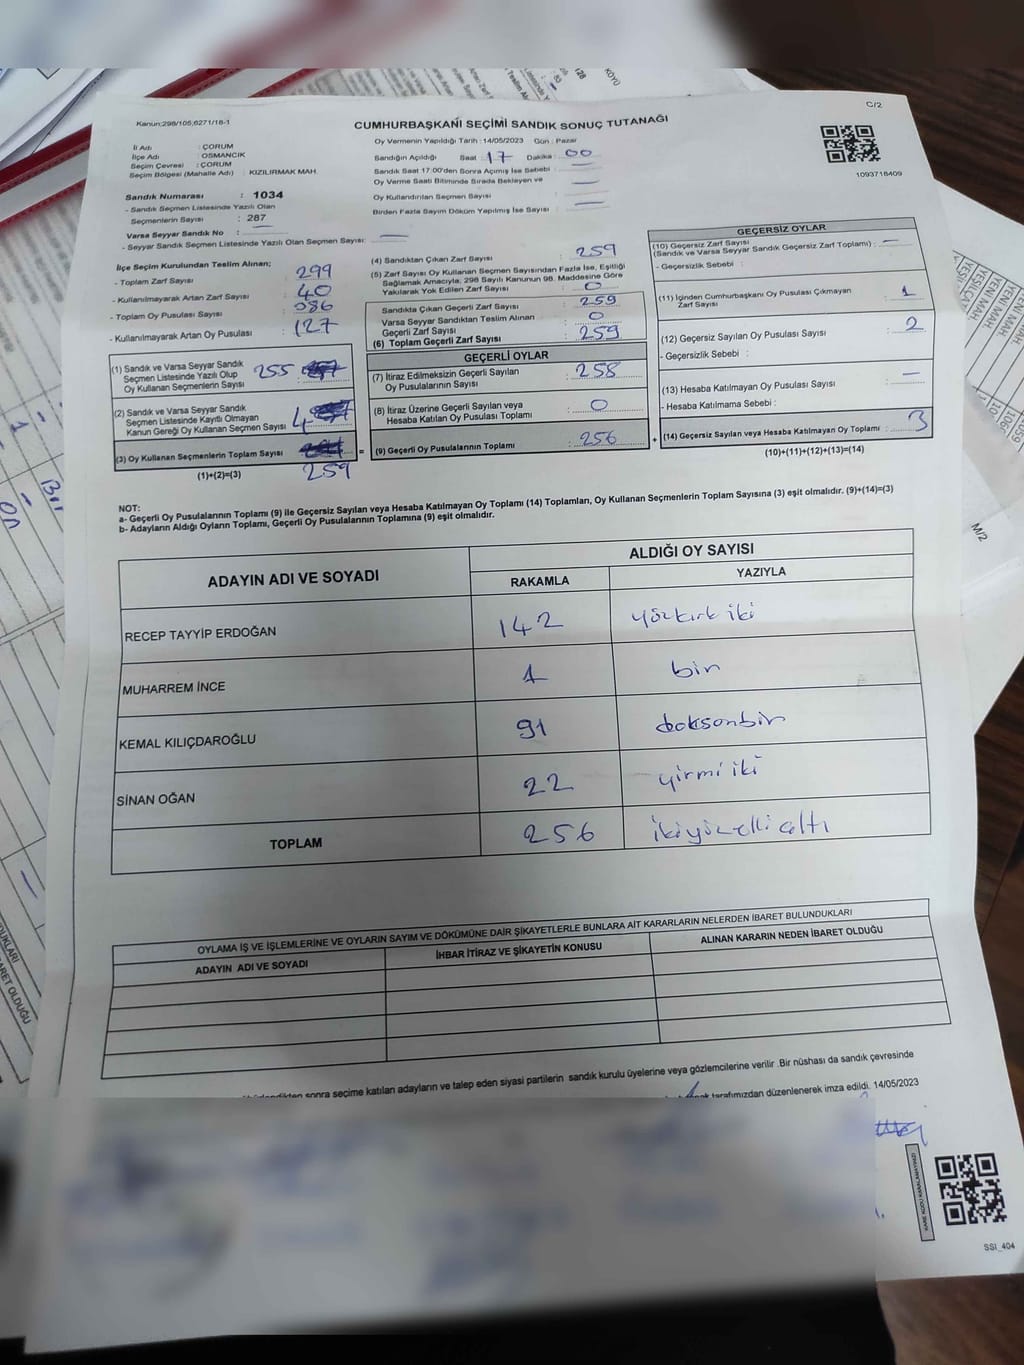 C/2
Kanun:298/105,6271/18-1
CUMHURBAŞKANI SEÇİMİ SANDIK SONUÇ TUTANAĞI
1093718409
İl Adı : ÇORUM
İlçe Adı : OSMANCIK
Seçim Çevresi : ÇORUM
Seçim Bölgesi (Mahalle Adı) : KIZILIRMAK MAH.
Sandık Numarası : 1034
- Sandık Seçmen Listesinde Yazılı Olan
Seçmenlerin Sayısı : 287
Varsa Seyyar Sandık No : —
- Seyyar Sandık Seçmen Listesinde Yazılı Olan Seçmen Sayısı: —
Oy Vermenin Yapıldığı Tarih :14/05/2023 Gün : Pazar
Sandığın Açıldığı Saat : 17 Dakika : 00
Sandık Saat 17:00'den Sonra Açılmış İse Sebebi : —
Oy Verme Saati Bitiminde Sırada Bekleyen ve
Oy Kullandırılan Seçmen Sayısı : —
Birden Fazla Sayım Döküm Yapılmış İse Sayısı : —
İlçe Seçim Kurulundan Teslim Alınan;
- Toplam Zarf Sayısı : 299
- Kullanılmayarak Artan Zarf Sayısı : 40
- Toplam Oy Pusulası Sayısı : 386
- Kullanılmayarak Artan Oy Pusulası : 127
(1) Sandık ve Varsa Seyyar Sandık
Seçmen Listesinde Yazılı Olup
Oy Kullanan Seçmenlerin Sayısı : 255
(2) Sandık ve Varsa Seyyar Sandık
Seçmen Listesinde Kayıtlı Olmayan
Kanun Gereği Oy Kullanan Seçmen Sayısı : 4
(3) Oy Kullanan Seçmenlerin Toplam Sayısı :
(1)+(2)=(3) 259
(4) Sandıktan Çıkan Zarf Sayısı : 259
(5) Zarf Sayısı Oy Kullanan Seçmen Sayısından Fazla İse, Eşitliği
Sağlamak Amacıyla, 298 Sayılı Kanunun 98. Maddesine Göre
Yakılarak Yok Edilen Zarf Sayısı : 0
Sandıkta Çıkan Geçerli Zarf Sayısı : 259
Varsa Seyyar Sandıktan Teslim Alınan
Geçerli Zarf Sayısı : 0
(6) Toplam Geçerli Zarf Sayısı : 259
GEÇERLİ OYLAR
(7) İtiraz Edilmeksizin Geçerli Sayılan
Oy Pusulalarının Sayısı : 258
(8) İtiraz Üzerine Geçerli Sayılan veya
Hesaba Katılan Oy Pusulası Toplamı : 0
= (9) Geçerli Oy Pusulalarının Toplamı : 256 +
GEÇERSİZ OYLAR
(10) Geçersiz Zarf Sayısı
(Sandık ve Varsa Seyyar Sandık Geçersiz Zarf Toplamı) : —
- Geçersizlik Sebebi :
(11) İçinden Cumhurbaşkanı Oy Pusulası Çıkmayan
Zarf Sayısı : 1
(12) Geçersiz Sayılan Oy Pusulası Sayısı : 2
- Geçersizlik Sebebi :
(13) Hesaba Katılmayan Oy Pusulası Sayısı : —
- Hesaba Katılmama Sebebi :
(14) Geçersiz Sayılan veya Hesaba Katılmayan Oy Toplamı : 3
(10)+(11)+(12)+(13)=(14)
NOT:
a- Geçerli Oy Pusulalarının Toplamı (9) ile Geçersiz Sayılan veya Hesaba Katılmayan Oy Toplamı (14) Toplamları, Oy Kullanan Seçmenlerin Toplam Sayısına (3) eşit olmalıdır. (9)+(14)=(3)
b- Adayların Aldığı Oyların Toplamı, Geçerli Oy Pusulalarının Toplamına (9) eşit olmalıdır.
ADAYIN ADI VE SOYADI
ALDIĞI OY SAYISI
RAKAMLA YAZIYLA
RECEP TAYYİP ERDOĞAN 142 yüzkırk iki
MUHARREM İNCE 1 bir
KEMAL KILIÇDAROĞLU 91 doksanbir
SİNAN OĞAN 22 yirmi iki
TOPLAM 256 ikiyüzelli altı
OYLAMA İŞ VE İŞLEMLERİNE VE OYLARIN SAYIM VE DÖKÜMÜNE DAİR ŞİKAYETLERLE BUNLARA AİT KARARLARIN NELERDEN İBARET BULUNDUKLARI
ADAYIN ADI VE SOYADI İHBAR İTİRAZ VE ŞİKAYETİN KONUSU ALINAN KARARIN NEDEN İBARET OLDUĞU
sonra seçime katılan adayların ve talep eden siyasi partilerin sandık kurulu üyelerine veya gözlemcilerine verilir .Bir nüshası da sandık çevresinde
tarafımızdan düzenlenerek imza edildi. 14/05/2023
SSI_404
M/2